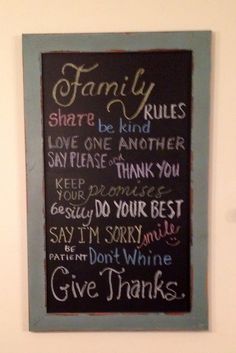 Family
RULES
share be kind
LOVE ONE ANOTHER
SAY PLEASE and THANK YOU
KEEP YOUR promises
be silly DO YOUR BEST
SAY I'M SORRY smile
BE PATIENT Don't Whine
Give Thanks.